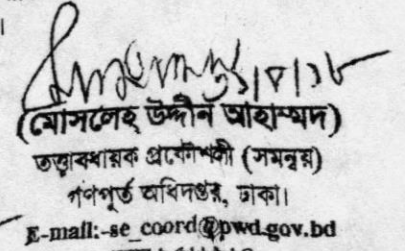 (মোসলেহ্ উদ্দীন আহাম্মদ)
তত্ত্বাবধায়ক প্রকৌশলী (সমন্বয়)
গণপূর্ত অধিদপ্তর, ঢাকা।
E-mail:-se_coord@pwd.gov.bd